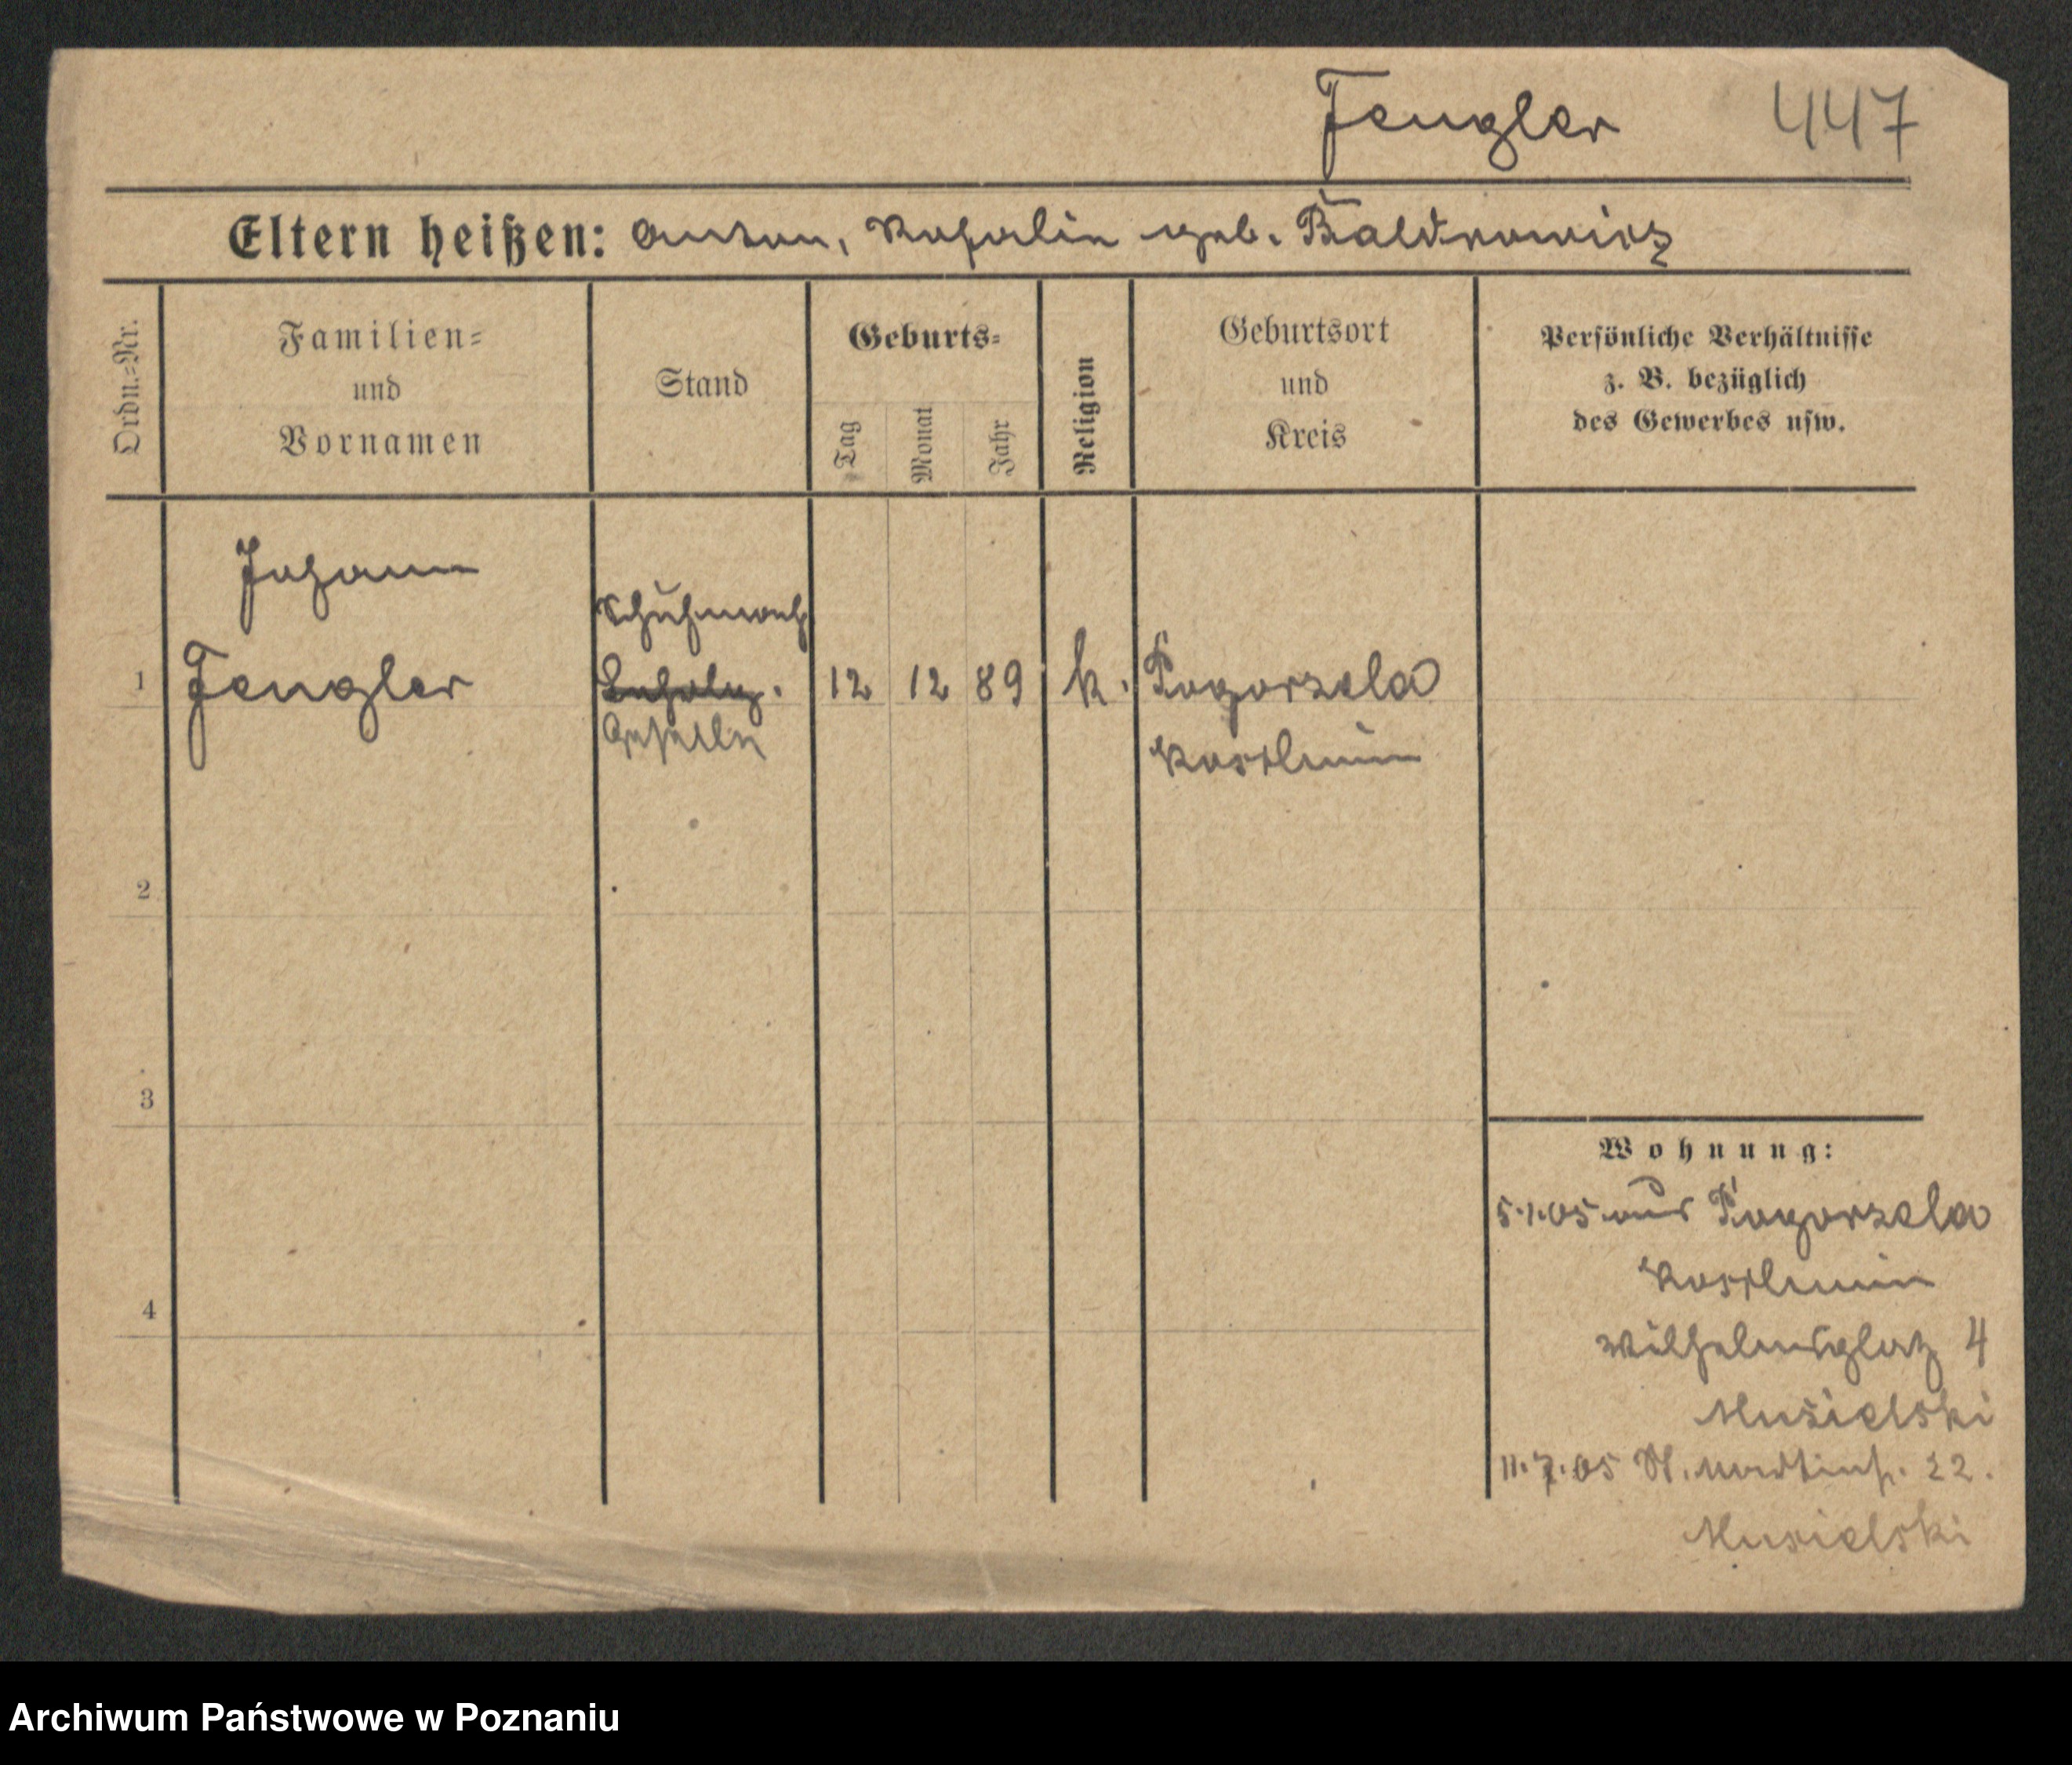 Fengler 447
Eltern heißen: Anton, Rosalie geb. Baldrowicz
Ordn.=Nr.
Familien=
und
Vornamen
Stand
Geburts=
Tag
Monat
Jahr
Religion
Geburtsort
und
Kreis
Persönliche Verhältnisse
z. B. bezüglich
des Gewerbes usw.
Johann
Schuhmach
1 Fengler Lehrlg. 12 12 89 k. Pogorzela
Geselle
Koschmin
2
3
4
Wohnung:
5.1.05 aus Pogorzela
Koschmin
Wilhelmsplatz 4
Musielski
11.7.05 St. Martinst. 22.
Musielski
Archiwum Państwowe w Poznaniu